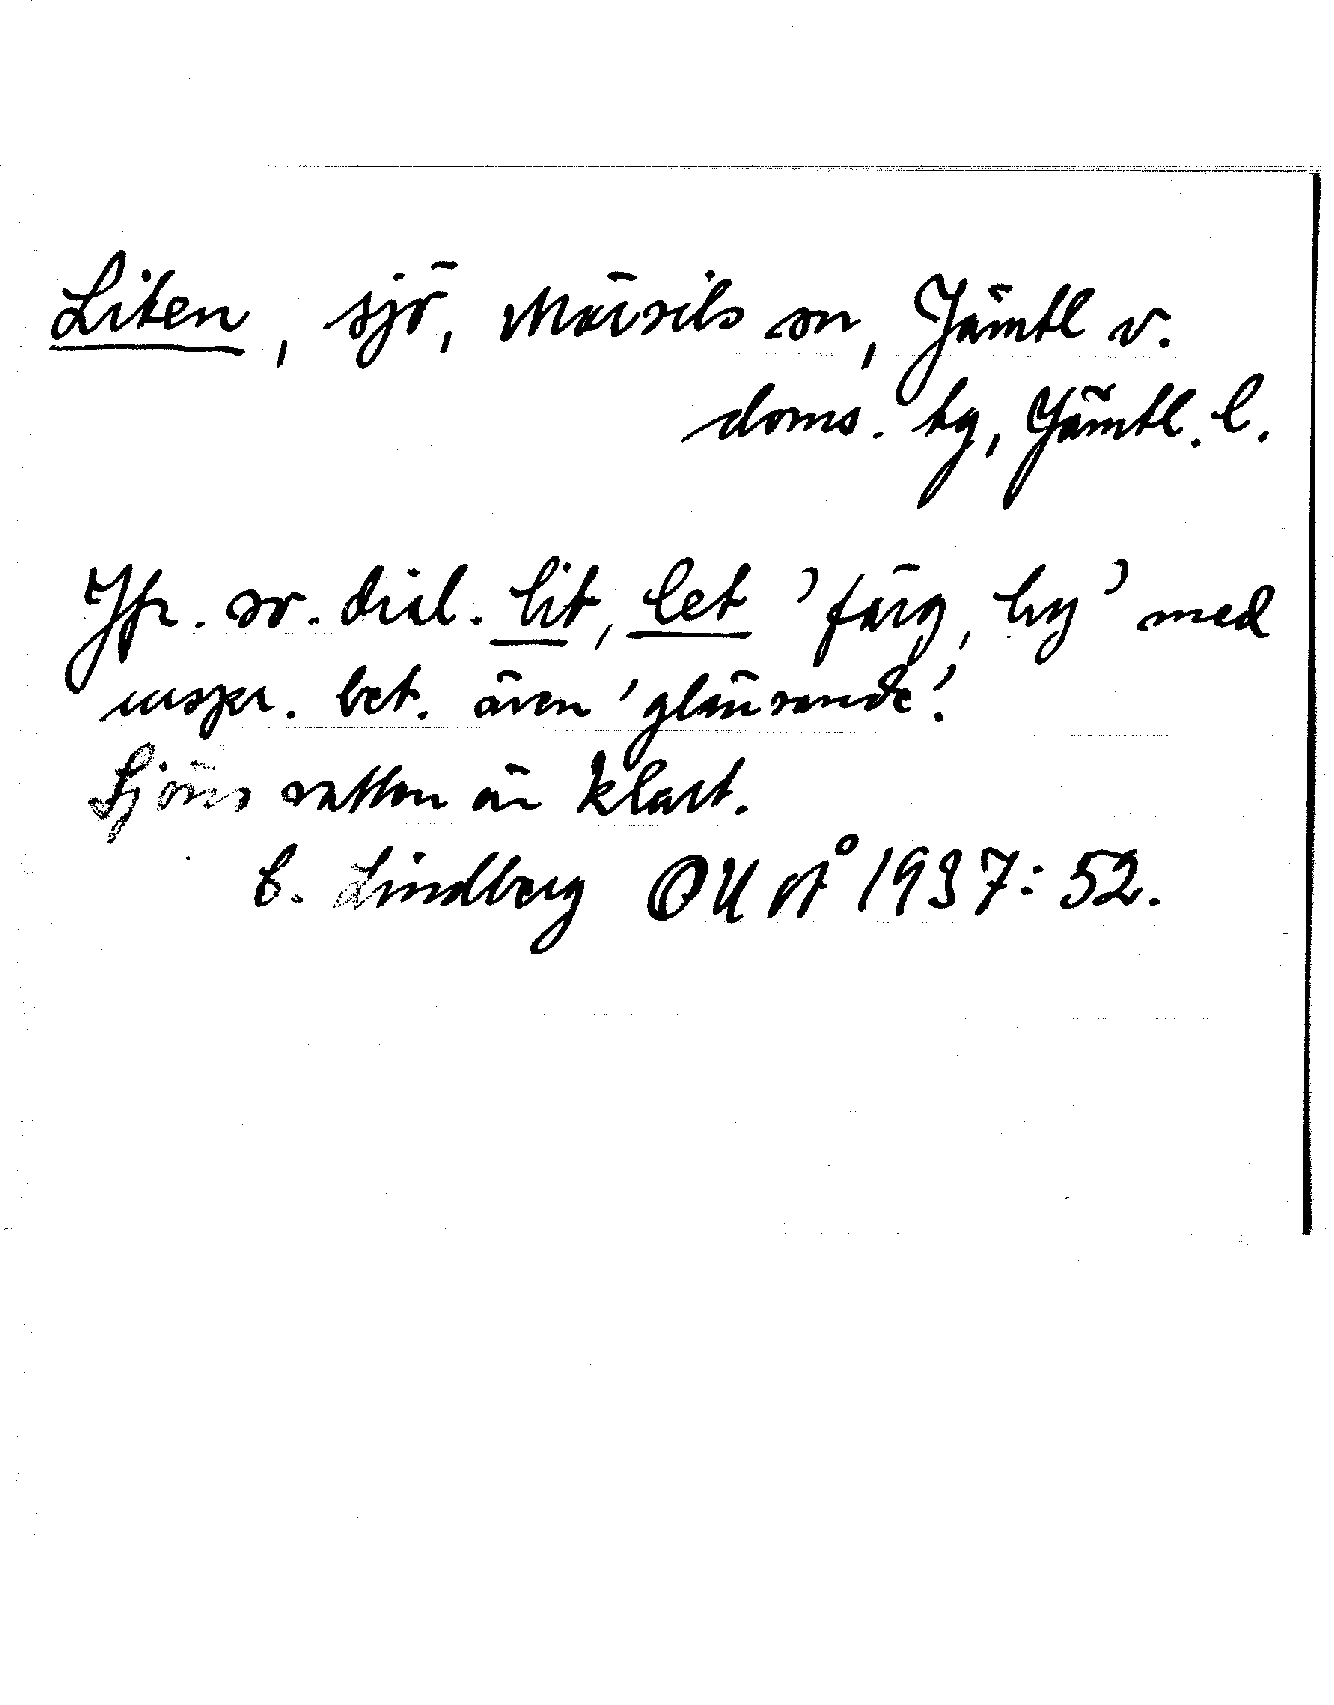 Liten, sjö, Mörsils sn, Jämtl v.
doms. tg, Jämtl. l.
Jfr. sv. dial. lit, let 'färg, hy' med
urspr. bet. även 'glänsande'.
Sjöns vatten är klart.
C. Lindberg OUÅ 1937: 52.